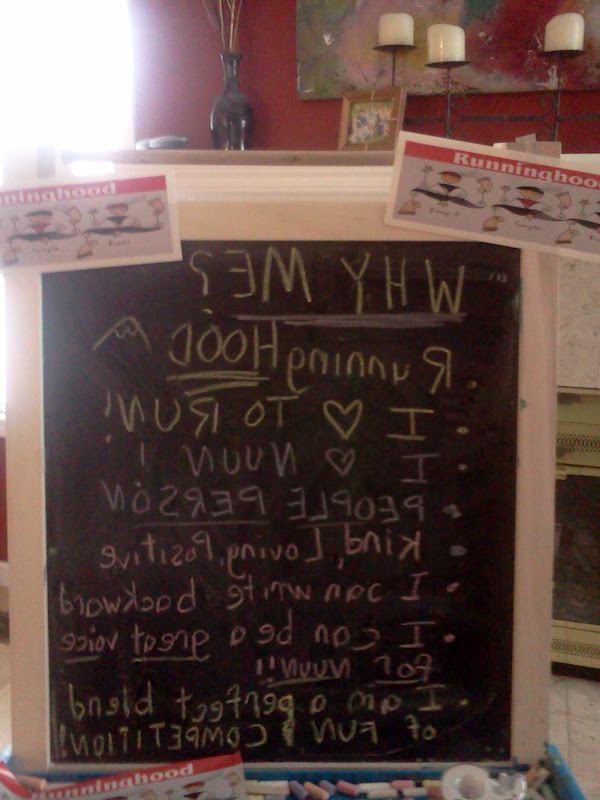 Runninghood
Runninghood
Simple.
Run!
Keep it
Simple.
WHY ME?
• RunningHOOD
• I ♡ TO RUN!
• I ♡ NUUN !
• PEOPLE PERSON
• Kind, Loving, Positive
• I can write backward
• I can be a great voice
for nuun!!
• I am a perfect blend
of FUN & COMPETITION!
Runninghood